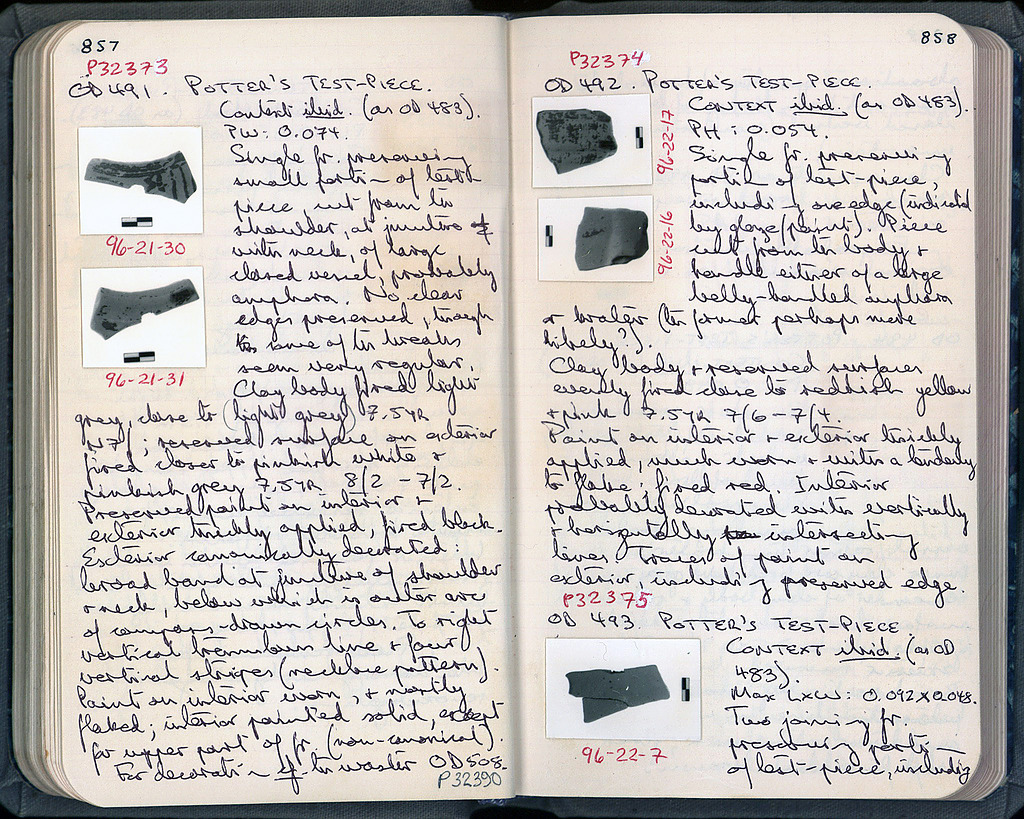 857
P32373
OD 491. POTTER'S TEST-PIECE.
Context ibid. (as OD 483).
PW: 0.074.
Single fr. preserving
small portion of test-
piece cut from the
shoulder, at juncture
with neck, of large
closed vessel, probably
amphora. No clear
edges preserved, though
some of the breaks
seem very regular.
Clay body fired light
grey, close to (light grey) 7.5YR
N7/; reserved surface on exterior
fired closer to pinkish white +
pinkish grey 7.5YR 8/2 - 7/2.
Preserved paint on interior +
exterior thickly applied, fired black.
Exterior canonically decorated:
broad band at juncture of shoulder
+ neck, below which is outer arc
of compass-drawn circles. To right
vertical tremulous line + four
vertical stripes (necklace pattern).
Paint on interior worn, + mostly
flaked; interior painted solid, except
for upper part of fr. (non-canonical).
For decoration cf. the waster OD 508.
P32390
96-21-30
96-21-31
858
P32374
OD 492. POTTER'S TEST-PIECE.
CONTEXT ibid. (as OD 483).
PH: 0.054.
Single fr. preserving
portion of test-piece,
including one edge (indicated
by glaze/paint). Piece
cut from the body +
handle either of a large
belly-handled amphora
or krater (the former perhaps more
likely?).
Clay body + reserved surfaces
evenly fired close to reddish yellow
+ pink 7.5YR 7/6 - 7/4.
Paint on interior + exterior thickly
applied, much worn + with a tendency
to flake; fired red. Interior
probably decorated with vertically
+ horizontally intersecting
lines. Traces of paint on
exterior, including preserved edge.
96-22-17
96-22-16
P32375
OD 493. POTTER'S TEST-PIECE.
CONTEXT ibid. (as OD
483).
Max LxW: 0.092 x 0.048.
Two joining fr.
preserving portion
of test-piece, including
96-22-7